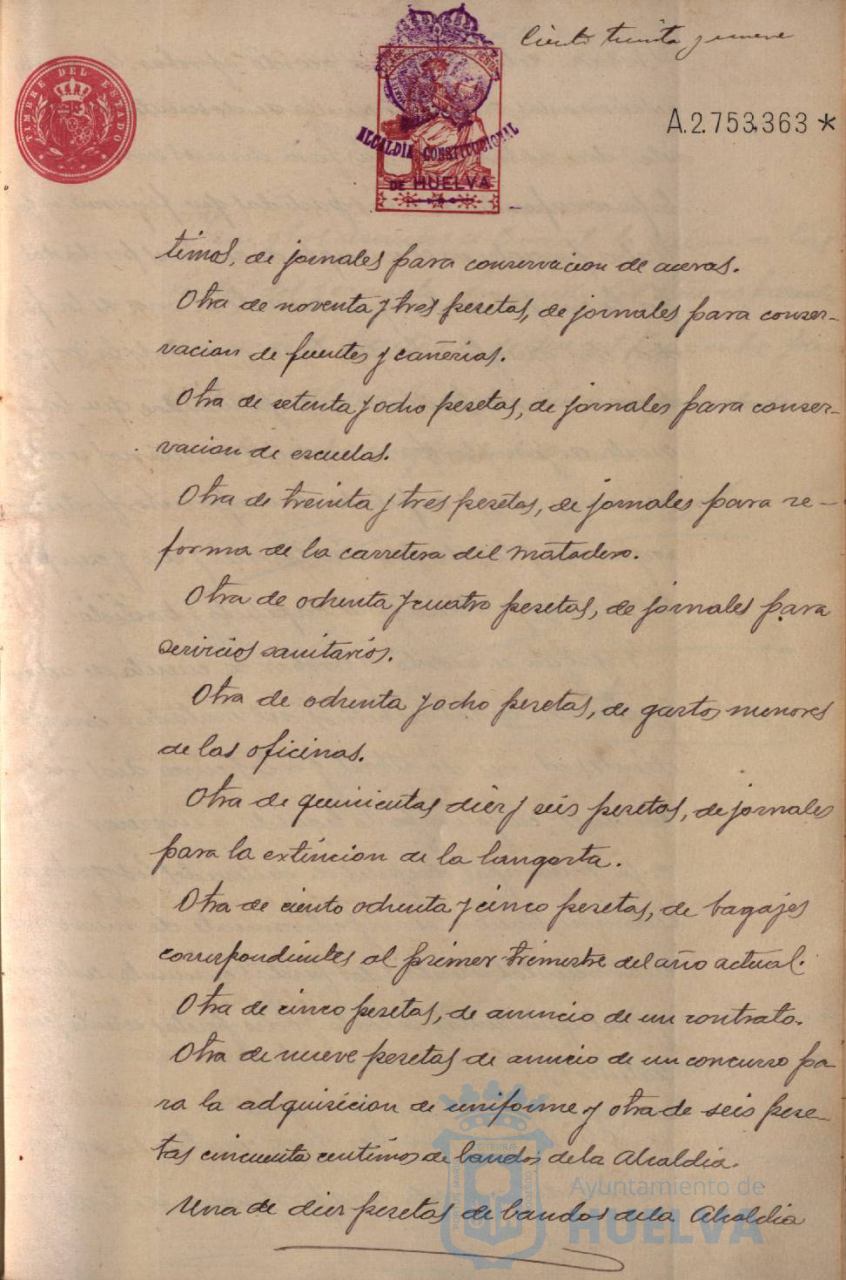 Ciento treinta y nueve
TIMBRE DEL ESTADO
A.2.753.363 *
ALCALDIA CONSTITUCIONAL
DE HUELVA
timos, de jornales para conservacion de aceras.
Otra de noventa y tres pesetas, de jornales para conser-
vacion de fuentes y cañerias.
Otra de setenta y ocho pesetas, de jornales para conser-
vacion de escuelas.
Otra de treinta y tres pesetas, de jornales para re-
forma de la carretera del matadero.
Otra de ochenta y cuatro pesetas, de jornales para
servicios sanitarios.
Otra de ochenta y ocho pesetas, de gastos menores
de las oficinas.
Otra de quinientas diez y seis pesetas, de jornales
para la extincion de la langosta.
Otra de ciento ochenta y cinco pesetas, de bagajes
correspondientes al primer trimestre del año actual.
Otra de cinco pesetas, de anuncio de un contrato.
Otra de nueve pesetas de anucio de un concurso pa-
ra la adquisicion de uniforme y otra de seis pese-
tas cincuenta centimos de bandos de la Alcaldia.
Una de diez pesetas de bandos de la Alcaldia
Ayuntamiento de
HUELVA